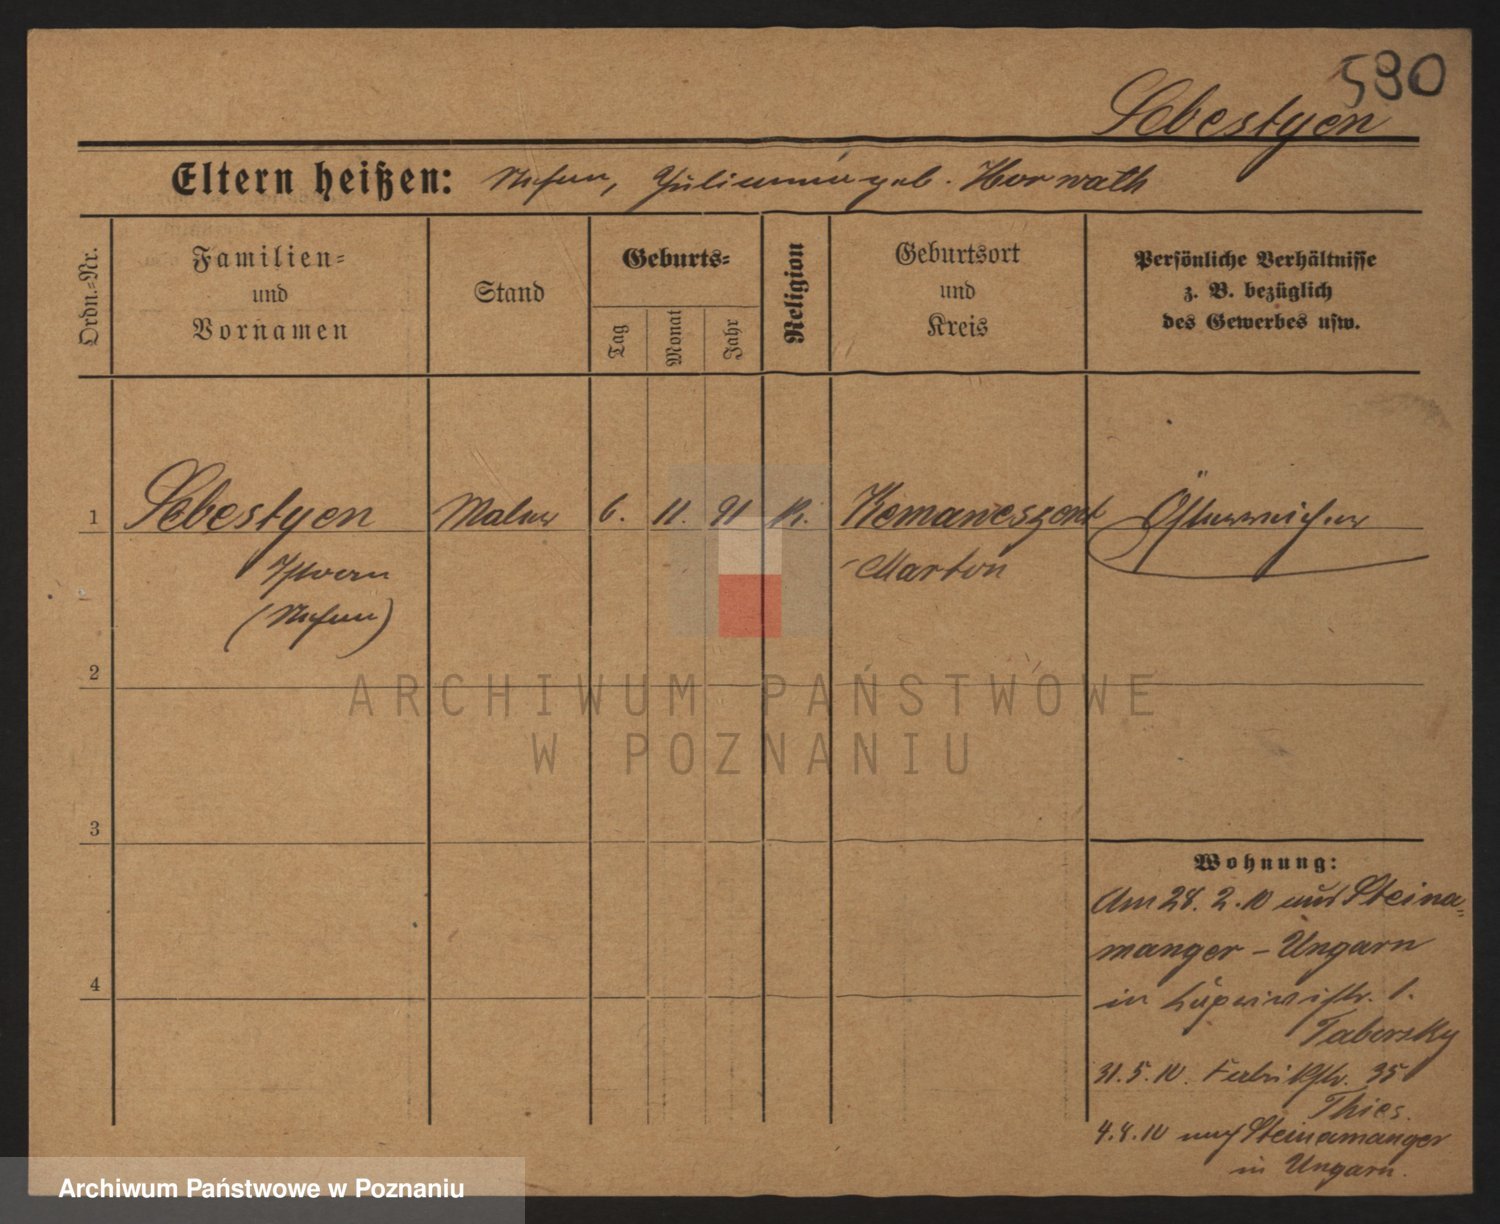 580
Sebestyen
Eltern heißen: Stefan, Julianna geb. Horwath
Ordn.-Nr.
Familien-
und
Vornamen
Stand
Geburts-
Tag
Monat
Jahr
Religion
Geburtsort
und
Kreis
Persönliche Verhältnisse
z. B. bezüglich
des Gewerbes usw.
1 Sebestyen Maler 6. 11. 91 K. Kemaneszent Österreicher
Marton
(Stefan)
2
3
4
Wohnung:
Am 28. 2. 10 aus Steina-
manger - Ungarn
in 1.
Taborsky
31.5.10. Fabrikstr. 35
Thies.
4.8.10 nach Steinamanger
in Ungarn.
ARCHIWUM PAŃSTWOWE
W POZNANIU
Archiwum Państwowe w Poznaniu